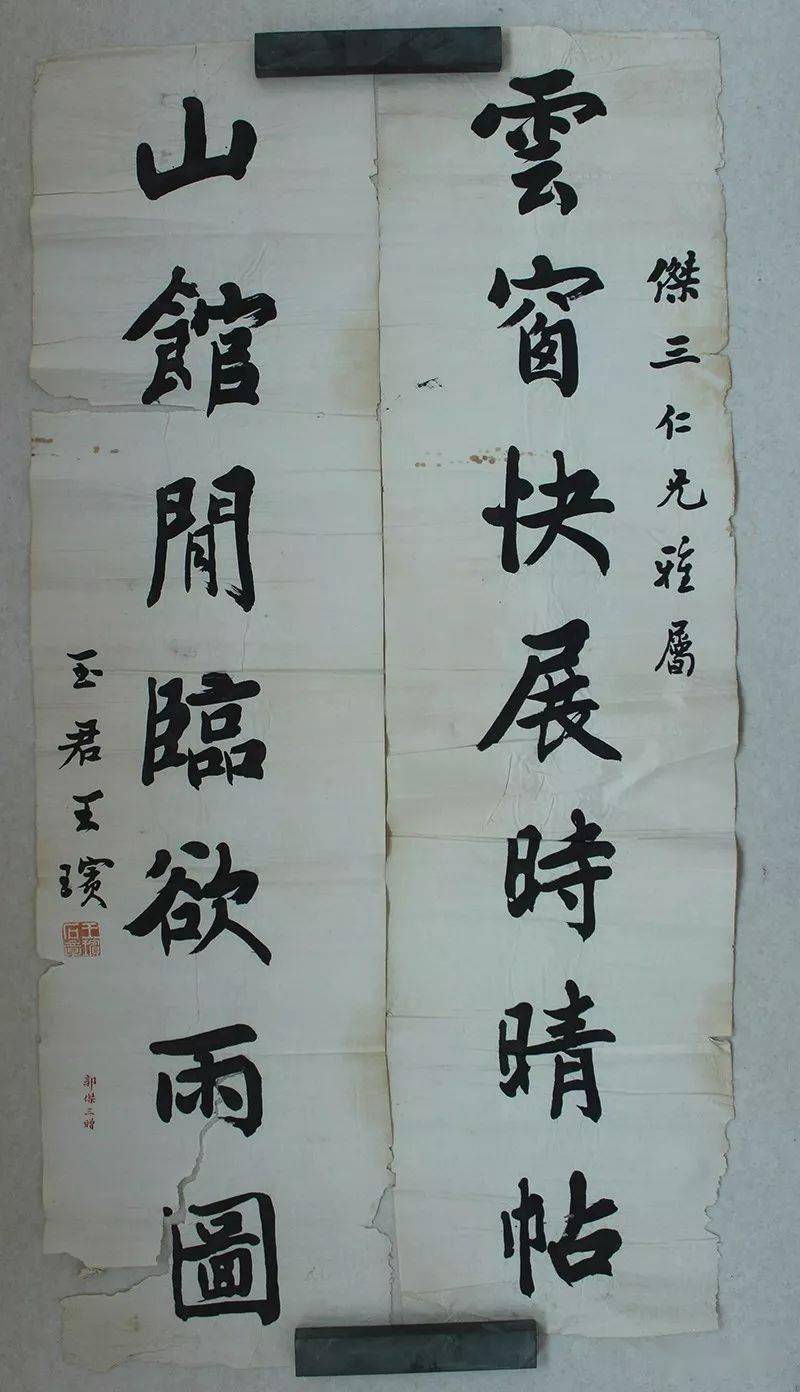 傑三仁兄雅屬
雲窗快展時晴帖
山館閒臨欲雨圖
玉君王璸
郭傑三贈